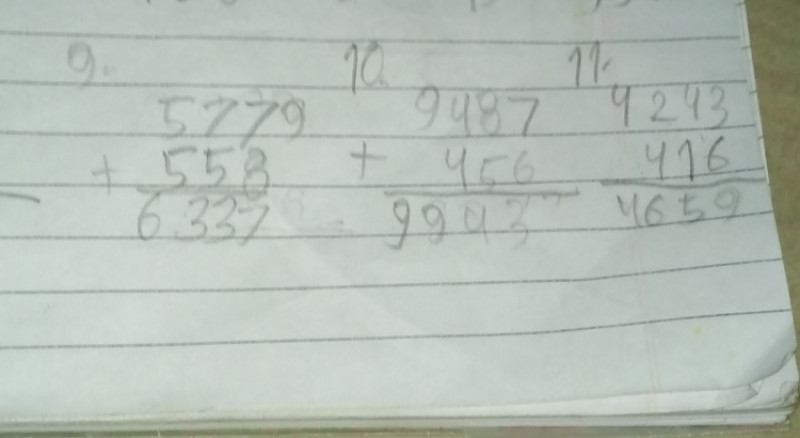 9. 10. 11.
5779 9487 4243
+ 558 + 456 416
6337 9943 4659